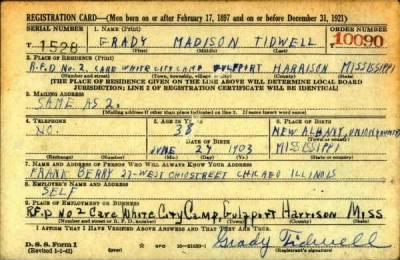 REGISTRATION CARD—(Men born on or after February 17, 1897 and on or before December 31, 1921)
SERIAL NUMBER 1. NAME (Print) ORDER NUMBER
T 1528 GRADY MADISON TIDWELL T 10090
(First) (Middle) (Last)
2. PLACE OF RESIDENCE (Print)
R.F.D No 2. CARE WHITE CITY CAMP GULFPORT HARRISON MISSISSIPPI
(Number and street) (Town, township, village or city) (County) (State)
[THE PLACE OF RESIDENCE GIVEN ON THE LINE ABOVE WILL DETERMINE LOCAL BOARD
JURISDICTION; LINE 2 OF REGISTRATION CERTIFICATE WILL BE IDENTICAL]
3. MAILING ADDRESS
SAME AS 2.
[Mailing address if other than place indicated on line 2. If same insert word same]
4. TELEPHONE 5. AGE IN YEARS 6. PLACE OF BIRTH
NO. 38 NEW ALBANY, UNION
DATE OF BIRTH (Town or county)
JUNE 29 1903 MISSISSIPPI
(Exchange) (Number) (Mo.) (Day) (Yr.) (State or country)
7. NAME AND ADDRESS OF PERSON WHO WILL ALWAYS KNOW YOUR ADDRESS
FRANK BERRY 27-WEST OHIO STREET CHICAGO ILLINOIS
8. EMPLOYER'S NAME AND ADDRESS
SELF
9. PLACE OF EMPLOYMENT OR BUSINESS
R.F.D No 2 Care White City Camp, Gulfport Harrison Miss
(Number and street or R. F. D. number) (Town) (County) (State)
I AFFIRM THAT I HAVE VERIFIED ABOVE ANSWERS AND THAT THEY ARE TRUE.
D. S. S. Form 1 GPO 16-21630-1 Grady Tidwell
(Revised 1-1-42) (Registrant's signature)